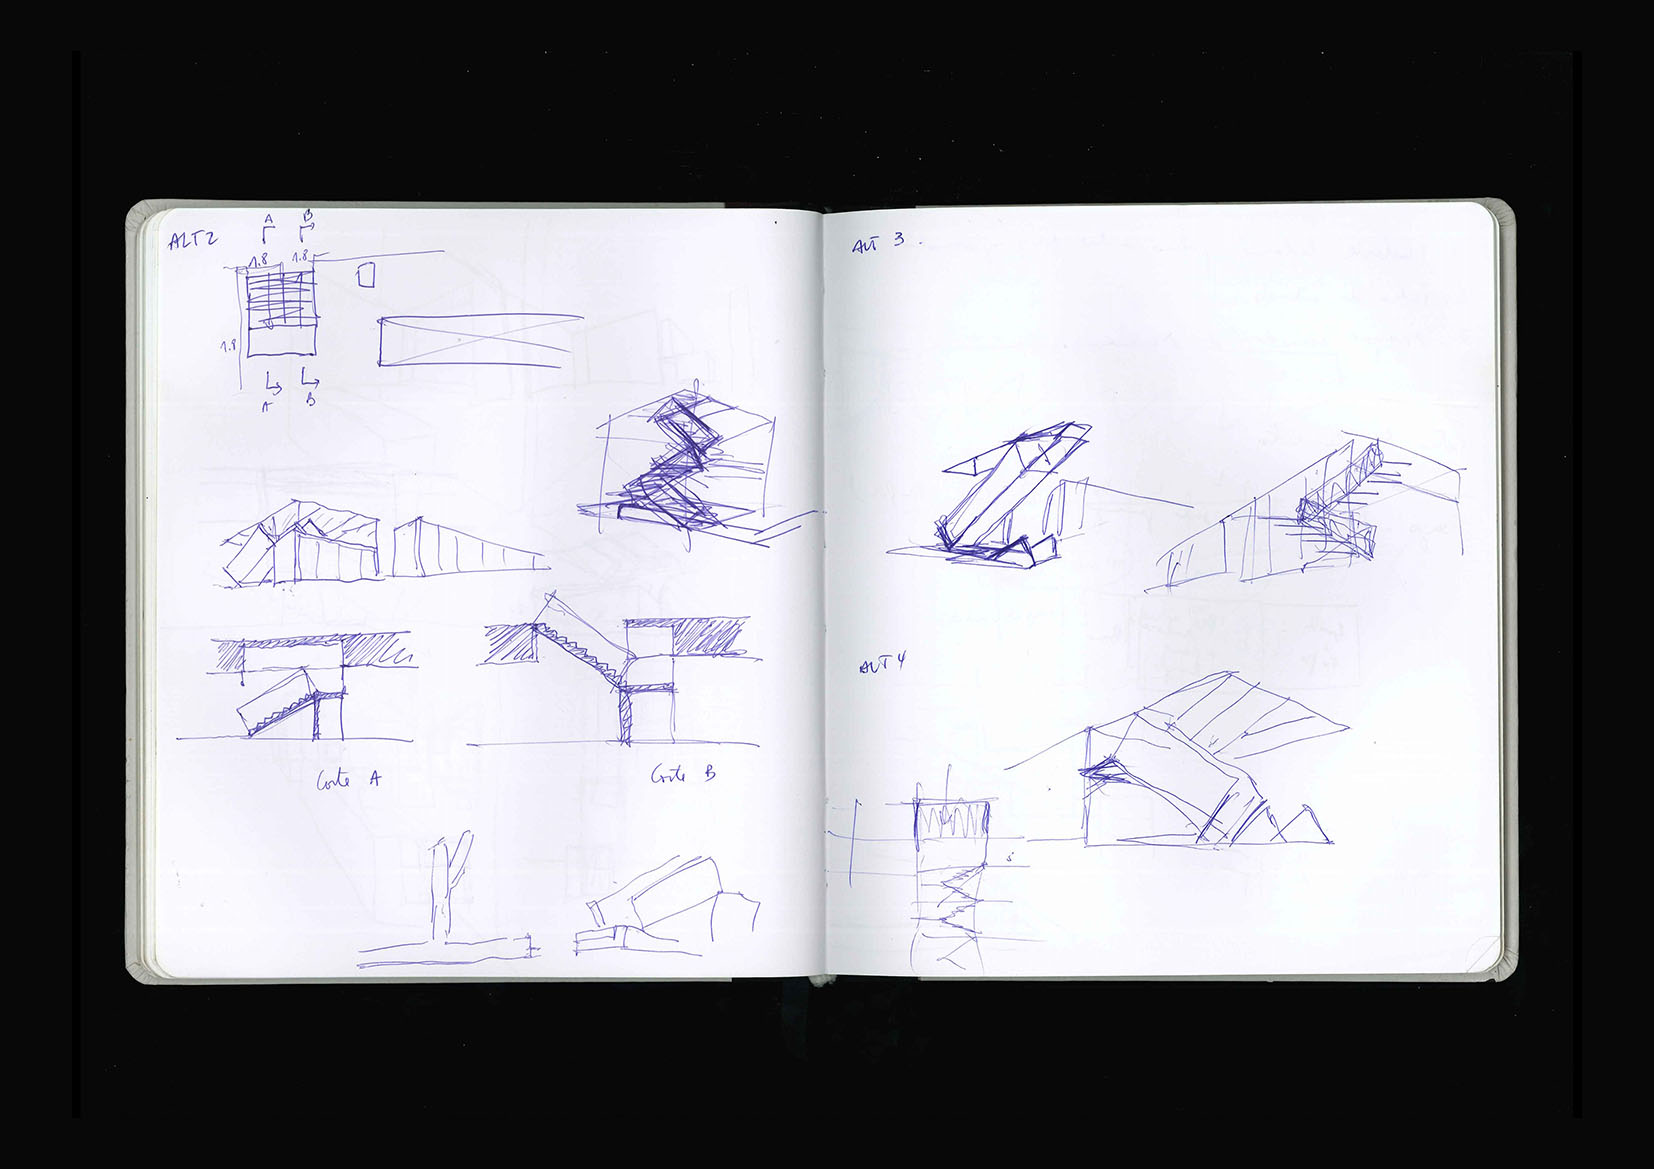 ALT 2
A B
1.8 1.8
1.8
A B
Corte A
Corte B
ALT 3
ALT 4